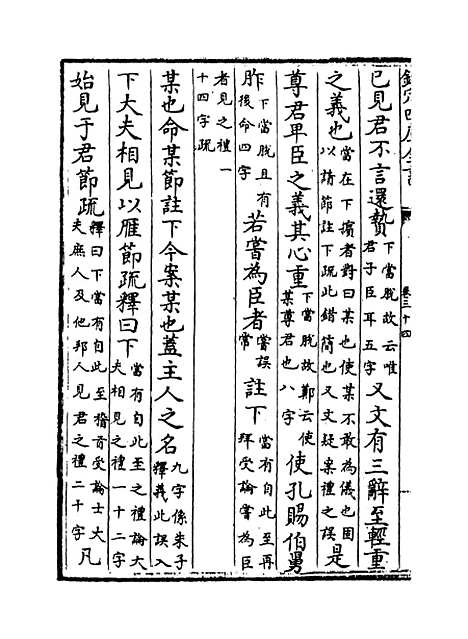 欽定四庫全書 卷三十四
已見君不言還贄下當脫故云唯君子臣耳五字又文有三辭至輕重
之義也當在下擯者對曰某也使某不敢為儀也固以請節註下疏此錯簡也又文疑案禮之誤是
尊君卑臣之義其心重下當脫故鄭云使某尊君也八字使孔賜伯舅
胙下當脫且有後命四字若嘗為臣者嘗誤常註下當有自此至再拜受論嘗為臣
者見之禮一十四字疏
某也命某節註下今案某也蓋主人之名九字係朱子釋義此誤入
下大夫相見以雁節疏釋曰下當有自此至之禮論大夫相見之禮一十二字
始見于君節疏釋曰下當有自此至稽首受論士大夫庶人及他邦人見君之禮二十字凡